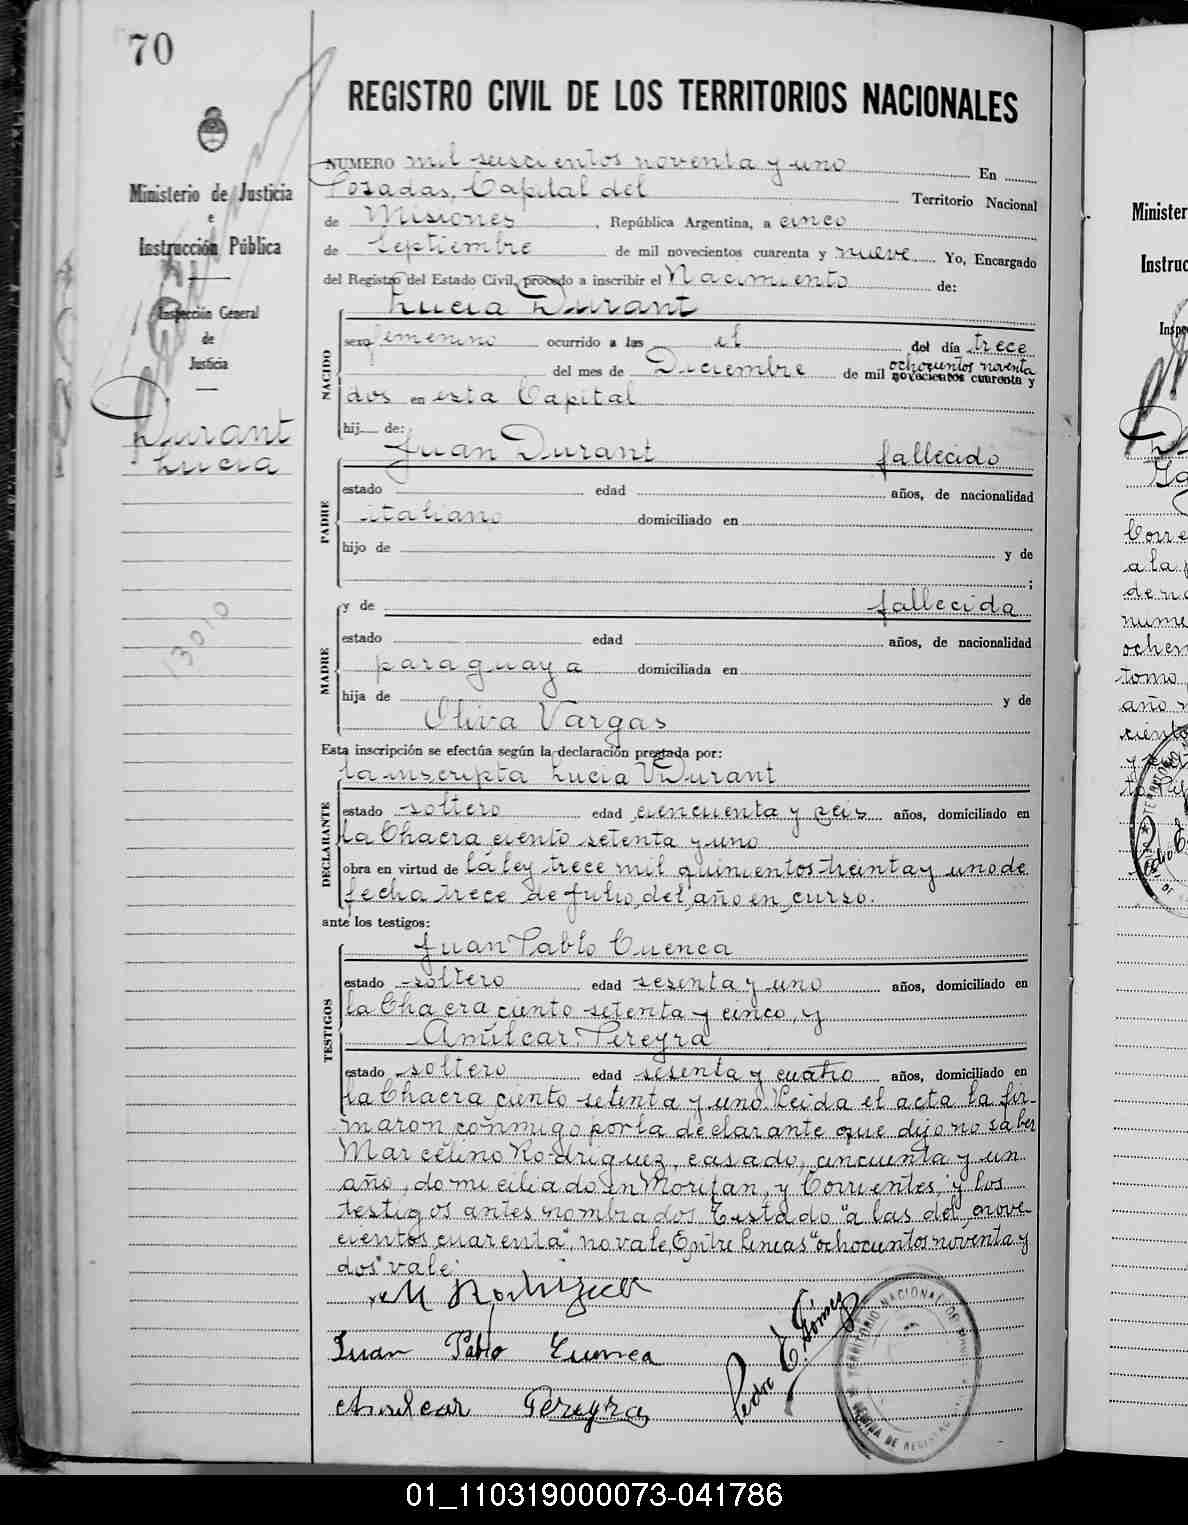 70
REGISTRO CIVIL DE LOS TERRITORIOS NACIONALES
Ministerio de Justicia
e
Instrucción Pública
Inspección General
de
Justicia
Durant
Lucia
13010
NUMERO mil seiscientos noventa y uno En
Posadas, Capital del Territorio Nacional
de Misiones, República Argentina, a cinco
de Septiembre de mil novecientos cuarenta y nueve Yo, Encargado
del Registro del Estado Civil, procedo a inscribir el Nacimiento de:
Lucia Durant
NACIDO
sexo femenino ocurrido a las el del día trece
del mes de Diciembre de mil novecientos cuarenta y
ochocientos noventa
dos en esta Capital
hij de:
Juan Durant fallecido
PADRE
estado edad años, de nacionalidad
italiano domiciliado en
hijo de y de
;
y de fallecida
MADRE
estado edad años, de nacionalidad
paraguaya domiciliada en
hija de y de
Oliva Vargas
Esta inscripción se efectúa según la declaración prestada por:
la inscripta Lucia Durant
DECLARANTE
estado soltero edad cincuenta y seis años, domiciliado en
la Chacra ciento setenta y uno
obra en virtud de la ley trece mil quinientos treinta y uno de
fecha trece de Julio, del, año en, curso.
ante los testigos:
Juan Pablo Cuenca
TESTIGOS
estado soltero edad sesenta y uno años, domiciliado en
la Chacra ciento setenta y cinco, y
Amílcar Pereyra
estado soltero edad sesenta y cuatro años, domiciliado en
la Chacra ciento setenta y uno. Leida el acta la fir-
maron conmigo por la declarante que dijo no saber
Marcelino Rodriguez, casado, cincuenta y un
año, domiciliado en y Corrientes, y los
testigos antes nombrados Testado "a las del nove-
cientos cuarenta", no vale, Entre lineas "ochocientos noventa y
dos" vale.
Juan Pablo Cuenca
Amilcar Pereyra
Pedro E. Gómez
TERRITORIO NACIONAL DE
Minister
Instruc
Inspe
Corre
a la
01_110319000073-041786